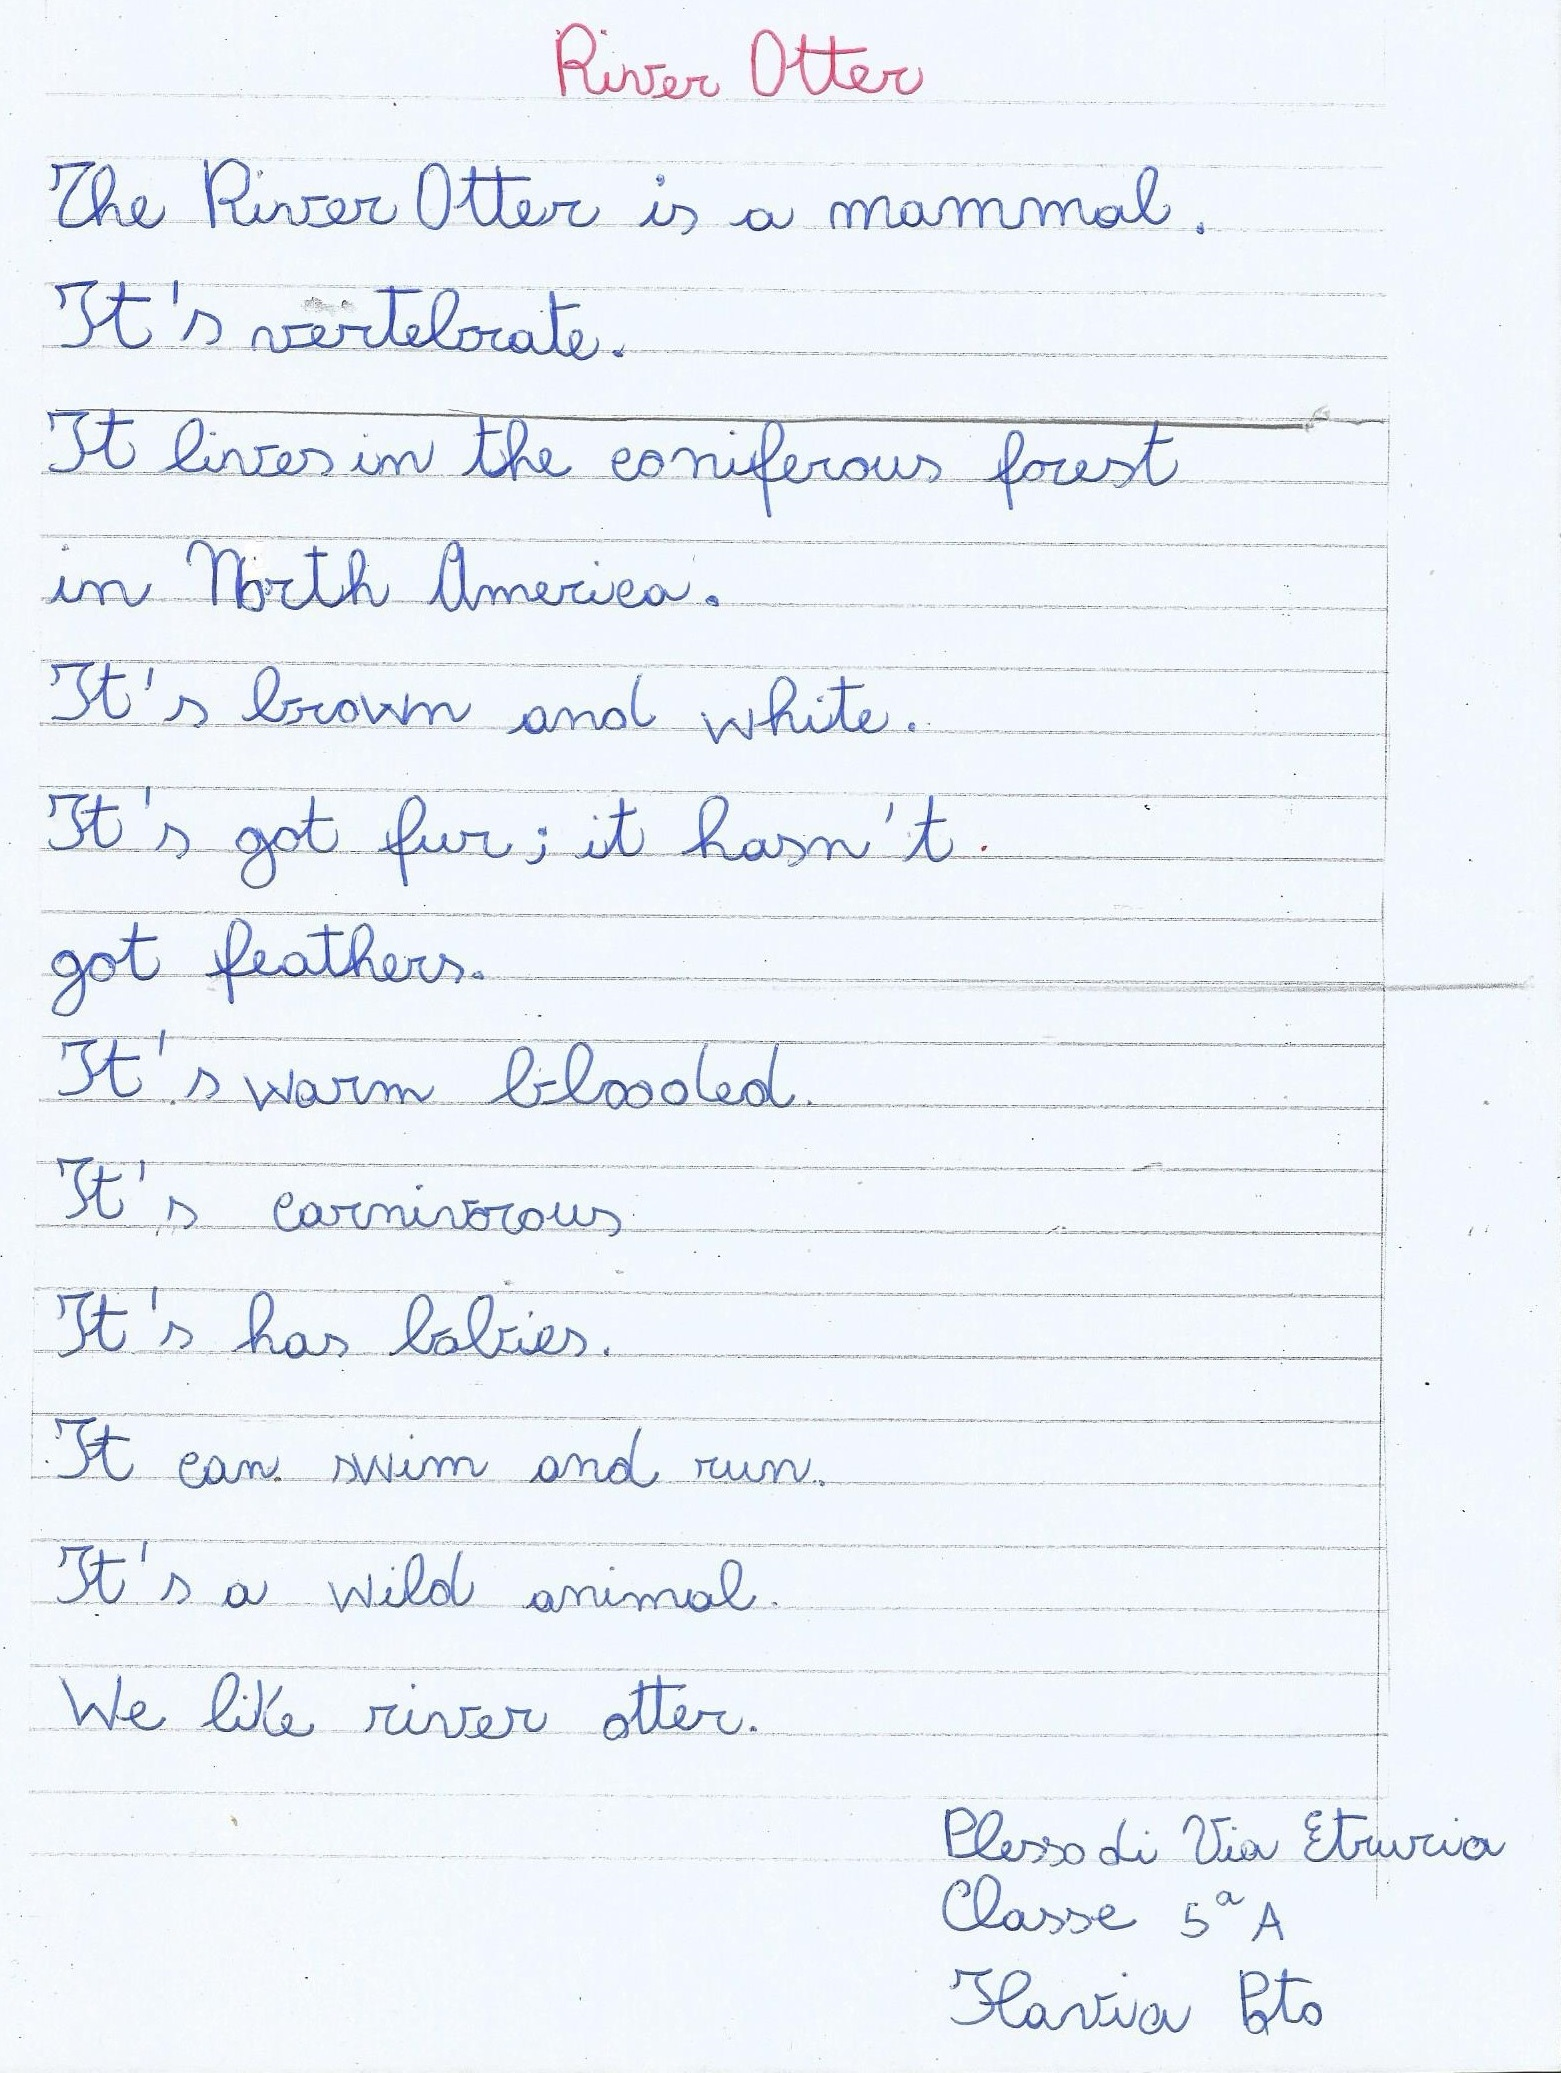 River Otter
The River Otter is a mammal.
It's vertebrate.
It lives in the coniferous forest
in North America.
It's brown and white.
It's got fur; it hasn't.
got feathers.
It's warm blooded.
It's carnivorous
It's has babies.
It can swim and run.
It's a wild animal.
We like river otter.
Plesso di Via Etruria
Classe 5ª A
Flavia